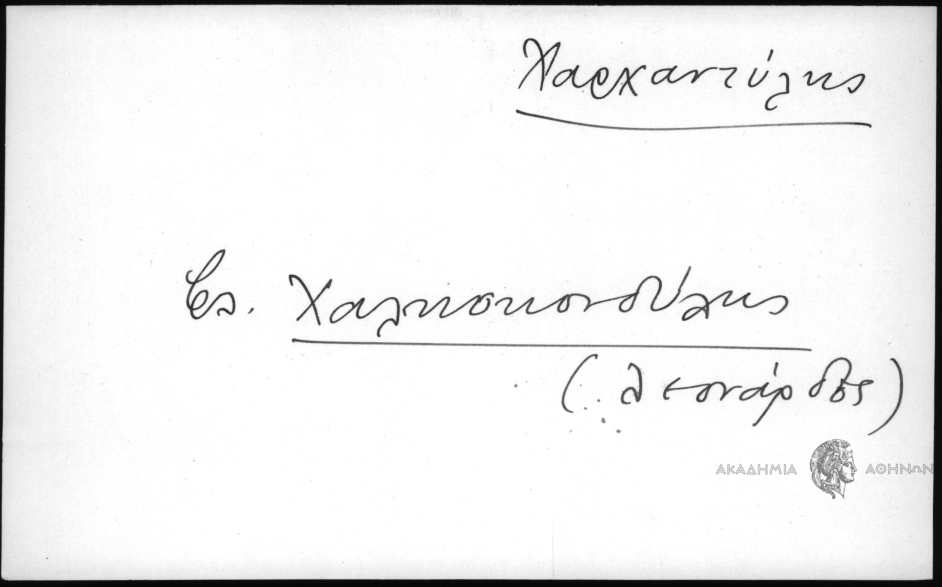 Χαρχαντύλης
βλ. Χαλκοκονδύλης
(λεονάρδος)
ΑΚΑΔΗΜΙΑ ΑΘΗΝΩΝ